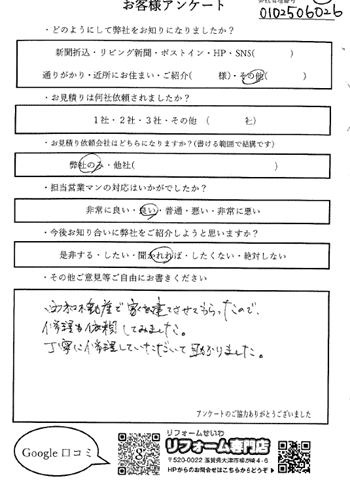 お客様アンケート
0102506026
・どのようにして弊社をお知りになりましたか？
新聞折込・リビング新聞・ポストイン・HP・SNS( )
通りがかり・近所にお住まい・ご紹介( 様)・その他( )
・お見積りは何社依頼されましたか？
1社・2社・3社・その他 ( 社)
・お見積り依頼会社はどちらになりますか？(書ける範囲で結構です)
弊社のみ・他社( )
・担当営業マンの対応はいかがでしたか？
非常に良い・良い・普通・悪い・非常に悪い
・今後お知り合いに弊社をご紹介しようと思いますか？
是非する・したい・聞かれれば・したくない・絶対しない
・その他ご意見等ご自由にお書きください
不動産で家を建てさせてもらったので、
修理も依頼してみました。
丁寧に修理していただいて助かりました。
アンケートのご協力ありがとうございました
Google 口コミ
リフォームせいわ
リフォーム専門店
〒520-0022 滋賀県大津市柳が崎4-6
HPからのお問合せはこちらからどうぞ▶